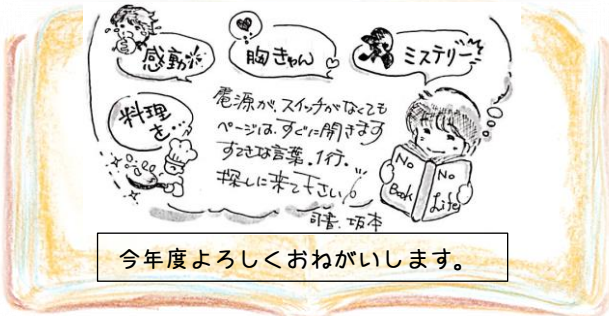 感動派
胸きゅん
ミステリー
料理
を…
電源が、スイッチがなくても
ページは、すぐに開きます
すてきな言葉。1行。
探しに来て下さい。
No
Book
No
Life
司書、坂本
今年度よろしくおねがいします。